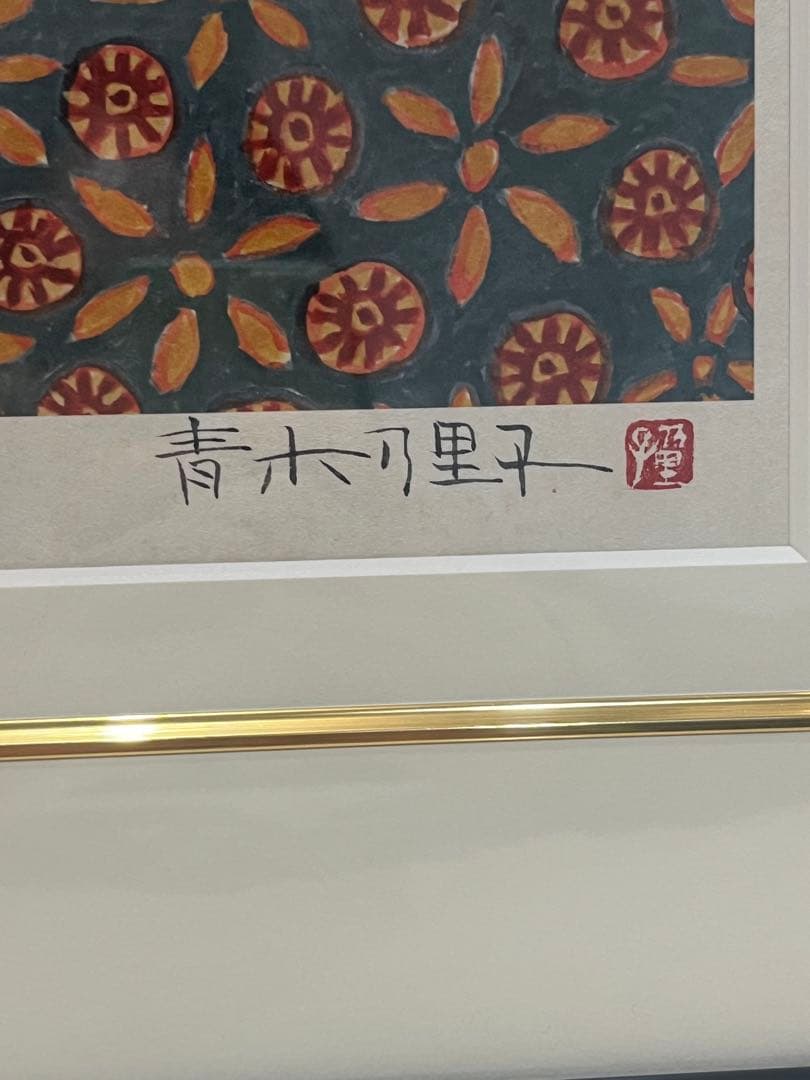 青木乃里子